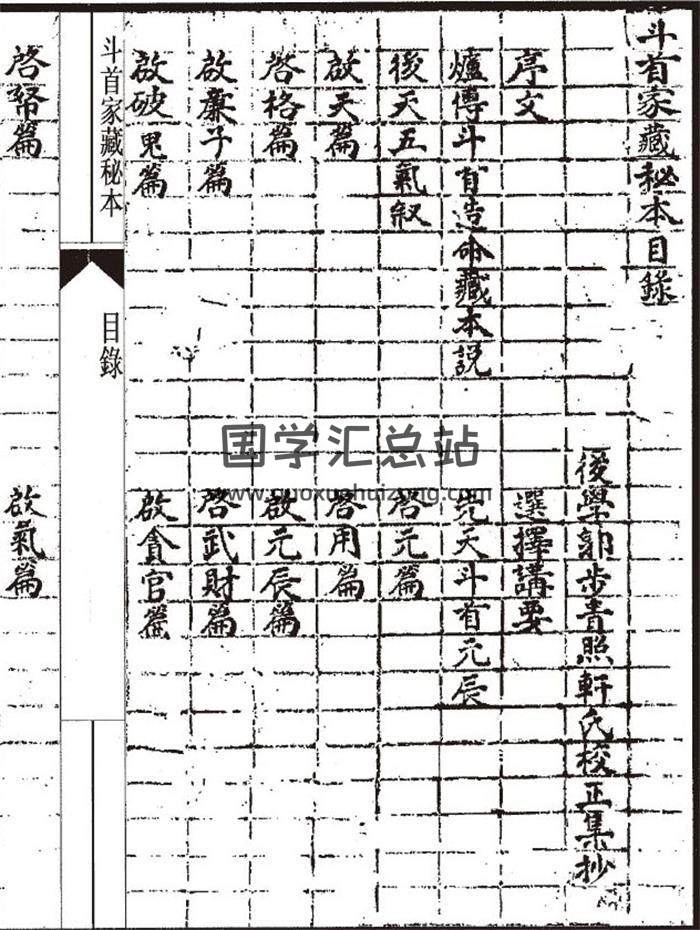 斗首家藏秘本目錄
後學郭步青照軒氏校正集抄
序文 選擇講要
爐傳斗首造命藏本説 先天斗首元辰
後天五氣叙 啓元篇
啟天篇 啓用篇
啓格篇 啟元辰篇
啟廉子篇 啓武財篇
啟破鬼篇 啟貪官篇
斗首家藏秘本 目錄
啓篇 啟氣篇
国学汇总站
www.guoxuehuizong.com